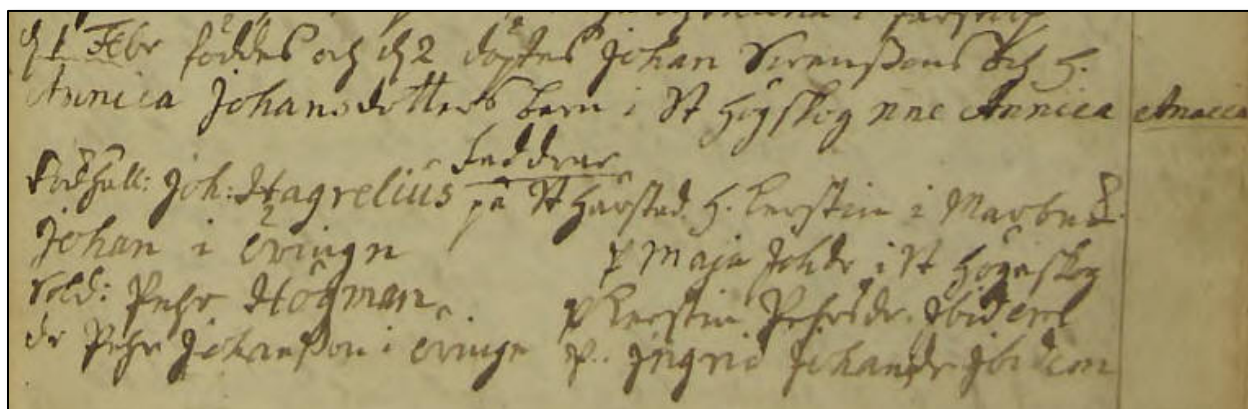 d 1 Febr föddes och d 2 döptes Johan Svenssons och h.
Annica Johansdotters barn i St Högskog nne Annica
Annica
Faddrar
Joh: Hagrelius på St Harstad. h. Kerstin i
Johan i
p Maja Johdr i St Högskog
Sold: Pehr Högman
p Kerstin Pehrsdr. Ibidem
dr Pehr Johansson i
p. Ingrid Johansdr Ibidem